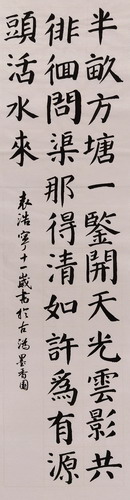 半畝方塘一鑒開天光雲影共
徘徊問渠那得清如許為有源
頭活水來
袁浩寧十一歲書於古鴻墨香園